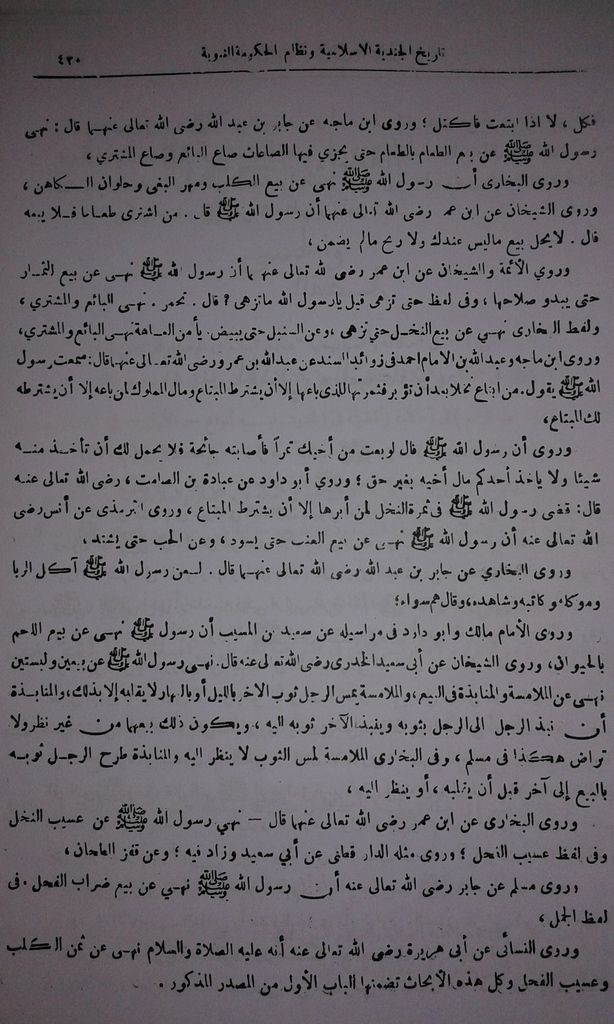 تاريخ الجندية الاسلامية ونظام الحكومة النبوية ٤٣٠
فكل ، لا اذا ابتعت فاكتل ؛ وروى ابن ماجه عن جابر بن عبد الله رضى الله تعالى عنهما قال : نهى
رسول الله ﷺ عن بيع الطعام بالطعام حتى يجزي فيها الصاعان صاع البائع وصاع المشتري ،
وروى البخارى أن رسول الله ﷺ نهى عن بيع الكلب ومهر البغى وحلوان الـكاهن ،
وروى الشيخان عن ابن عمر رضى الله تعالى عنهما أن رسول الله ﷺ قال . من اشترى طعاما فلا يبعه
قال . لايحل بيع ماليس عندك ولا ربح مالم يضمن ،
وروي الأئمة والشيخان عن ابن عمر رضى لله تعالى عنهما أن رسول الله ﷺ نهى عن بيع الثمار
حتى يبدو صلاحها ، وفى لفظ حتى تزهى قيل يارسول الله ماتزهى ؟ قال . تحمر . نهى البائع والمشترى ،
ولفظ البخارى نهى عن بيع النخل حتى تزهى ، وعن السنبل حتى يبيض . يأمن العاهة نهى البائع والمشترى،
وروى ابن ماجه وعبد الله بن الامام احمد فى زوائد السند عن عبد الله بن عمر ورضى الله تعالى عنهما قال : سمعت رسول
الله ﷺ يقول . من ابتاع نخلا بعد أن تؤبر فثمرتها للذى باعها إلا أن يشترط المبتاع ومال المملوك لمن باعه إلا أن يشترطه
لك المبتاع،
وروى أن رسول الله ﷺ قال لوبعت من أخيك تمراً فأصابته جائحة فلا يحل لك أن تأخذ منه
شيئا ولا ياخذ أحدكم مال أخيه بغير حق ؛ وروي أبو داود عن عبادة بن الصامت ، رضى الله تعالى عنه
قال : قضى رسول الله ﷺ فى ثمرة النخل لمن أبرها إلا أن يشترط المبتاع ، وروى الترمذى عن أنس رضى
الله تعالى عنه أن رسول الله ﷺ نهى عن بيع العنب حتى يسود ، وعن الحب حتى يشتد ،
وروى البخاري عن جابر بن عبد الله رضى الله تعالى عنهما قال . لـعن رسول الله ﷺ آكل الربا
وموكله وكاتبه وشاهده، وقال هم سواء؛
وروى الأمام مالك وابو دارد فى مراسيله عن سعيد بن المسيب أن رسول ﷺ نهى عن بيع اللحم
بالحيوان، وروى الشيخان عن أبى سعيد الخدرى رضى الله تعالى عنه قال . نهى رسول الله ﷺ عن بيعين ولبستين
نهى عن الملامسة والمنابذة فى البيع، والملامسة يمس الرجل ثوب الاخر بالليل أو بالنهار لا يقلبه إلا بذلك، والمنابذة
أن نبذ الرجل الى الرجل بثوبه وينبذ الآخر ثوبه اليه ، ويكون ذلك بيعهما من غير نظر ولا
تراض هكذا فى مسلم ، وفى البخارى الملامسة لمس الثوب لا ينظر اليه والمنابذة طرح الرجل ثوبه
بالبيع إلى آخر قبل أن يقلبه ، أو ينظر اليه ،
وروى البخارى عن ابن عمر رضى الله تعالى عنهما قال — نهي رسول الله ﷺ عن عسيب النخل
وفى لفظ عسيب الفحل ؛ وروى مثله الدار قطنى عن أبي سعيد وزاد فيه ؛ وعن قفز الطحان ،
وروى مسلم عن جابر رضى الله تعالى عنه أن رسول الله ﷺ نهى عن بيع ضراب الفحل . فى
لفظ الجمل ،
وروى النسائى عن أبى هريرة رضى الله تعالى عنه أنه عليه الصلاة والسلام نهى عن ثمن الكلب
وعسيب الفحل وكل هذه الأبحاث تضمنها الباب الأول من المصدر المذكور .